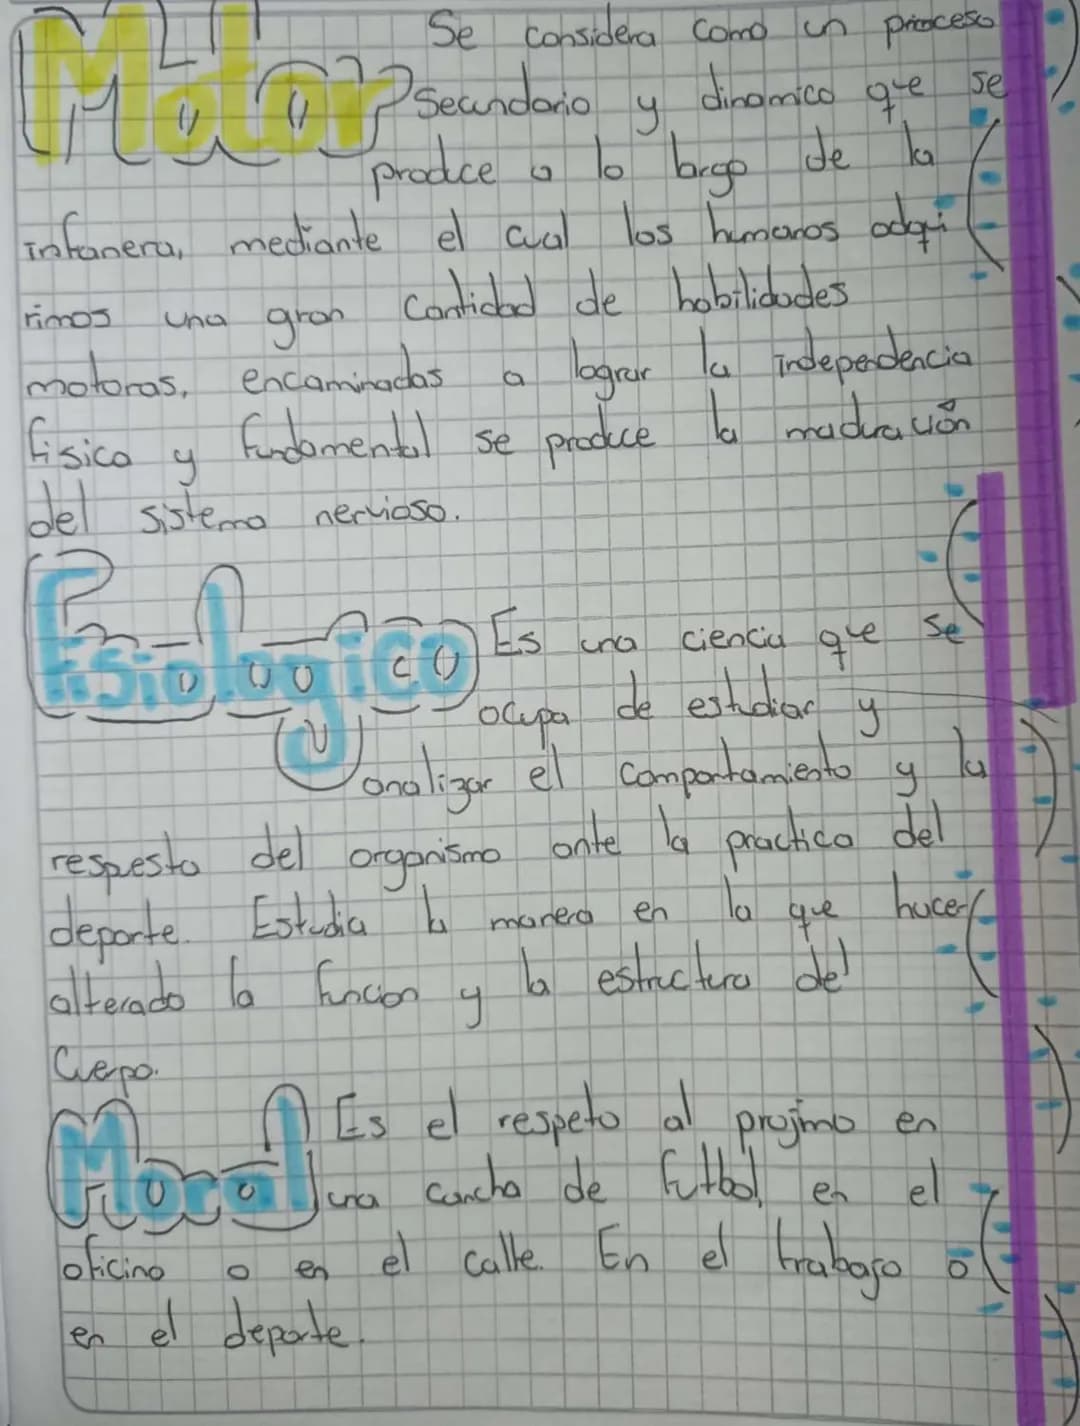 Motor Se considera como un princeso
Secundario y dinamico que se
produce a lo largo de la
infanera, mediante el cual los humanos adqui
rimos una gran cantidad de habilidades
motoras, encaminadas a lograr la independencia
fisica y fundamental se produce la maduración
del sistema nervioso.
Fisiologico Es una ciencia que se
ocupa de estudiar y
analizar el comportamiento y la
respesta del organismo ante la practica del
deporte. Estudia la manera en la que hacer
alterado la funcion y la estructura del
Cuerpo.
Moral Es el respeto al projimo en
una cancha de futbol, en el
oficina o en el calle. En el trabajo o
en el deporte.